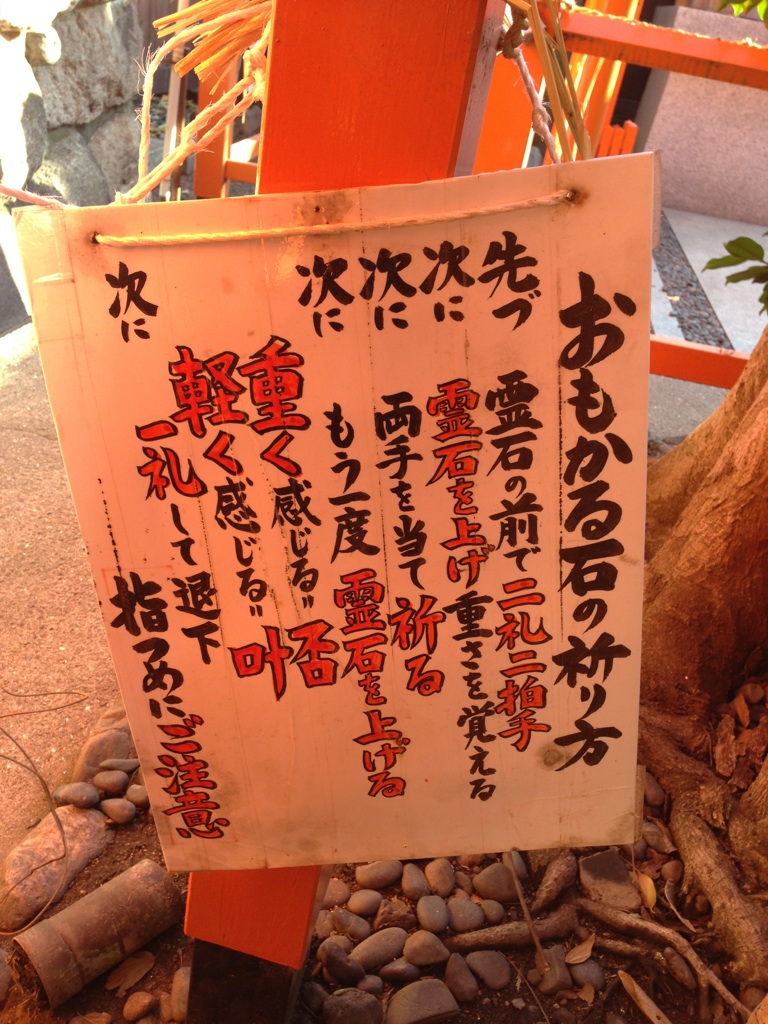 おもかる石の祈り方
先づ 霊石の前で二礼二拍手
次に 霊石を上げ重さを覚える
次に 両手を当て祈る
次に もう一度霊石を上げる
重く感じる〃否
軽く感じる〃叶
次に 一礼して退下
指つめに、ご注意